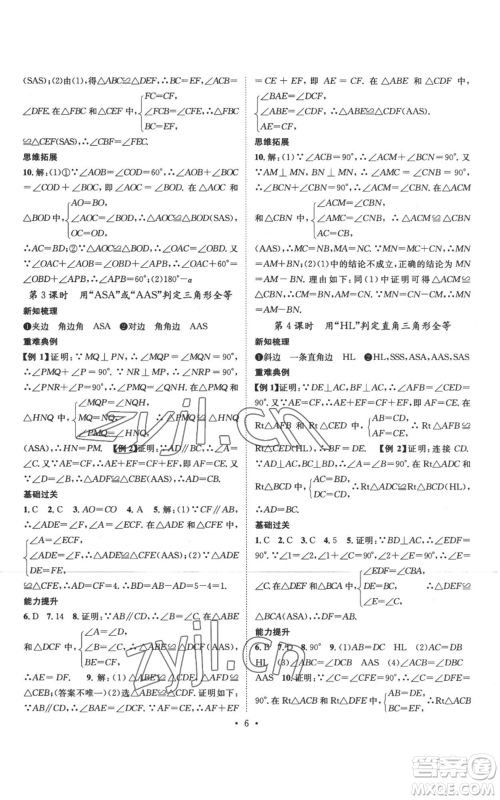 (SAS);(2)由(1),得△ABC≌△DEF,∴BC=EF,∠ABC=
∠DFE. 在△FBC 和△CEF 中,
FC=CF,
∠FCB=∠CFE,
BC=EF,
∴△FBC
≌△CEF(SAS),∴∠CBF=∠FEC.
思维拓展
10. 解:(1)①∵∠AOB=∠COD=60°,∴∠AOB+∠AOD=
∠COD+∠AOD,∴∠BOD=∠AOC. 在△AOC 和
△BOD 中,
AO=BO,
∠AOC=∠BOD,
OC=OD,
∴△AOC≌△BOD(SAS),
∴AC=BD;②∵△AOC≌△BOD,∴∠OAC=∠OBD.
又∵∠OAC+∠AOB=∠OBD+∠APB,∴∠OAC+60°=
∠OBD+∠APB,∴∠APB=60°;(2)180°-α
第 3 课时 用“ASA”或“AAS”判定三角形全等
新知梳理
❶夹边 角边角 ASA ❷对边 角角边 AAS
重难典例
【例 1】证明:∵MQ⊥PN,∴∠MQP=∠MQN=90°,
∴∠P+∠PMQ=90°. ∵NR⊥MP,∴∠MRN=90°,
∴∠P+∠PNR=90°,∴∠PMQ=∠PNR. 在△PMQ 和
△HNQ 中,
∠PMQ=∠QNH,
MQ=NQ,
∠MQP=∠HQN,
∴△PMQ≌△HNQ
(ASA),∴HN=PM. 【例 2】证明:∵AD∥BC,∴∠A=
∠C. 又∵AE=CF,∴AE+EF=CF+EF,即 AF=CE.
∵∠D=∠B,∴△ADF≌△CBE(AAS).
基础过关
1. C 2. C 3. AO=CO 4. A 5. 解:(1)∵CF∥AB,
∴∠A=∠ECF. 在△ADE 和△CFE 中,
∠A=∠ECF,
∠ADE=∠F,
DE=FE,
∴△ADE
≌△CFE,∴AD=CF=4. ∴BD=AB-AD=5-4=1.
能力提升
6. D 7. 14 8. 证明:∵AB∥CD,∴∠B=∠C. 在△ABE
和△DCF 中,
∠A=∠D,
∠B=∠C,
BE=CF,
∴△ABE≌△DCF(AAS),
∴AE=DF. 9. 解:(1)△ABE≌△CDF,△AFD≌
△CEB;(答案不唯一)(2)选△ABE≌△CDF,证明如
下:∵AB∥CD,∴∠1=∠2. ∵AF=CE,∴AF+EF
=CE+EF,即 AE=CF,在△ABE 和△CDF 中,
∠1=∠2,
∠ABE=∠CDF,
AE=CF,
∴△ABE≌△CDF(AAS).
思维拓展
10. 解:(1)∵∠ACB=90°,∴∠ACM+∠BCN=90°. 又
∵AM⊥MN,BN⊥MN,∴∠AMC=∠CNB=90°,
∴∠BCN+∠CBN=90°,∴∠ACM=∠CBN. 在△ACM
和△CBN 中,
∠ACM=∠CBN,
∠AMC=∠CNB,
AC=CB,
∴△ACM≌△CBN
(AAS),∴MC=NB,MA=NC. ∵MN=MC+CN,
∴MN=AM+BN;(2)(1)中的结论不成立,正确结论为
MN=AM-BN. 理由如下:同(1)中证明可得△ACM≌
△CBN(AAS),∴CM=BN,AM=CN. ∵MN=CN-
CM,∴MN=AM-BN.
第 4 课时 用“HL”判定直角三角形全等
新知梳理
❶斜边 一条直角边 HL ❷HL,SSS,ASA,AAS,SAS
重难典例
【例 1】证明:∵DE⊥AC,BF⊥AC,∴∠AFB=∠CED
=90°. ∵AE=CF,∴AE+EF=CF+EF,即 AF=CE.
在 Rt△ABF 和 Rt△CDE 中,
AB=CD,
AF=CE,
∴Rt△ABF≌
Rt△CDE(HL),∴BF=DE. 【例 2】证明:连接 CD.
∵AD⊥AC,BC⊥BD,∴∠A=∠B=90°. 在 Rt△ADC
和 Rt△BCD 中,
AD=BC,
CD=DC,
∴Rt△ADC≌Rt△BCD(HL),
∴AC=BD.
基础过关
1. C 2. C 3. C 4. 5 5. 证明:∵BD⊥AC,∴∠EDF
=90°. ∵∠1+∠2=90°,∠2+∠C=90°,∴∠1=∠C.
在△EDF 和△CBA 中,
∠EDF=∠CBA,
∠1=∠C,
DE=BC,
∴△EDF≌
△CBA(ASA),∴EF=AC.
能力提升
6. B 7. D 8. 90° 9. (1)AC=BD HL (2)AC=DB
HL (3)∠ABC=∠DCB AAS (4)∠ACB=∠DBC
AAS 10. 证明:∵DE⊥AB,DF⊥AC,∴∠E=∠DFC
=90°. 在 Rt△BDE 和 Rt△CDF 中,
BD=CD,
BE=CF,
∴Rt△BDE≌Rt△CDF(HL),∴DE=DF. 在 Rt△ADE
和 Rt△ADF 中,
DE=DF,
AD=AD,
∴Rt△ADE≌Rt△ADF
• 6 •
zyjl.cn
zyjl.cn